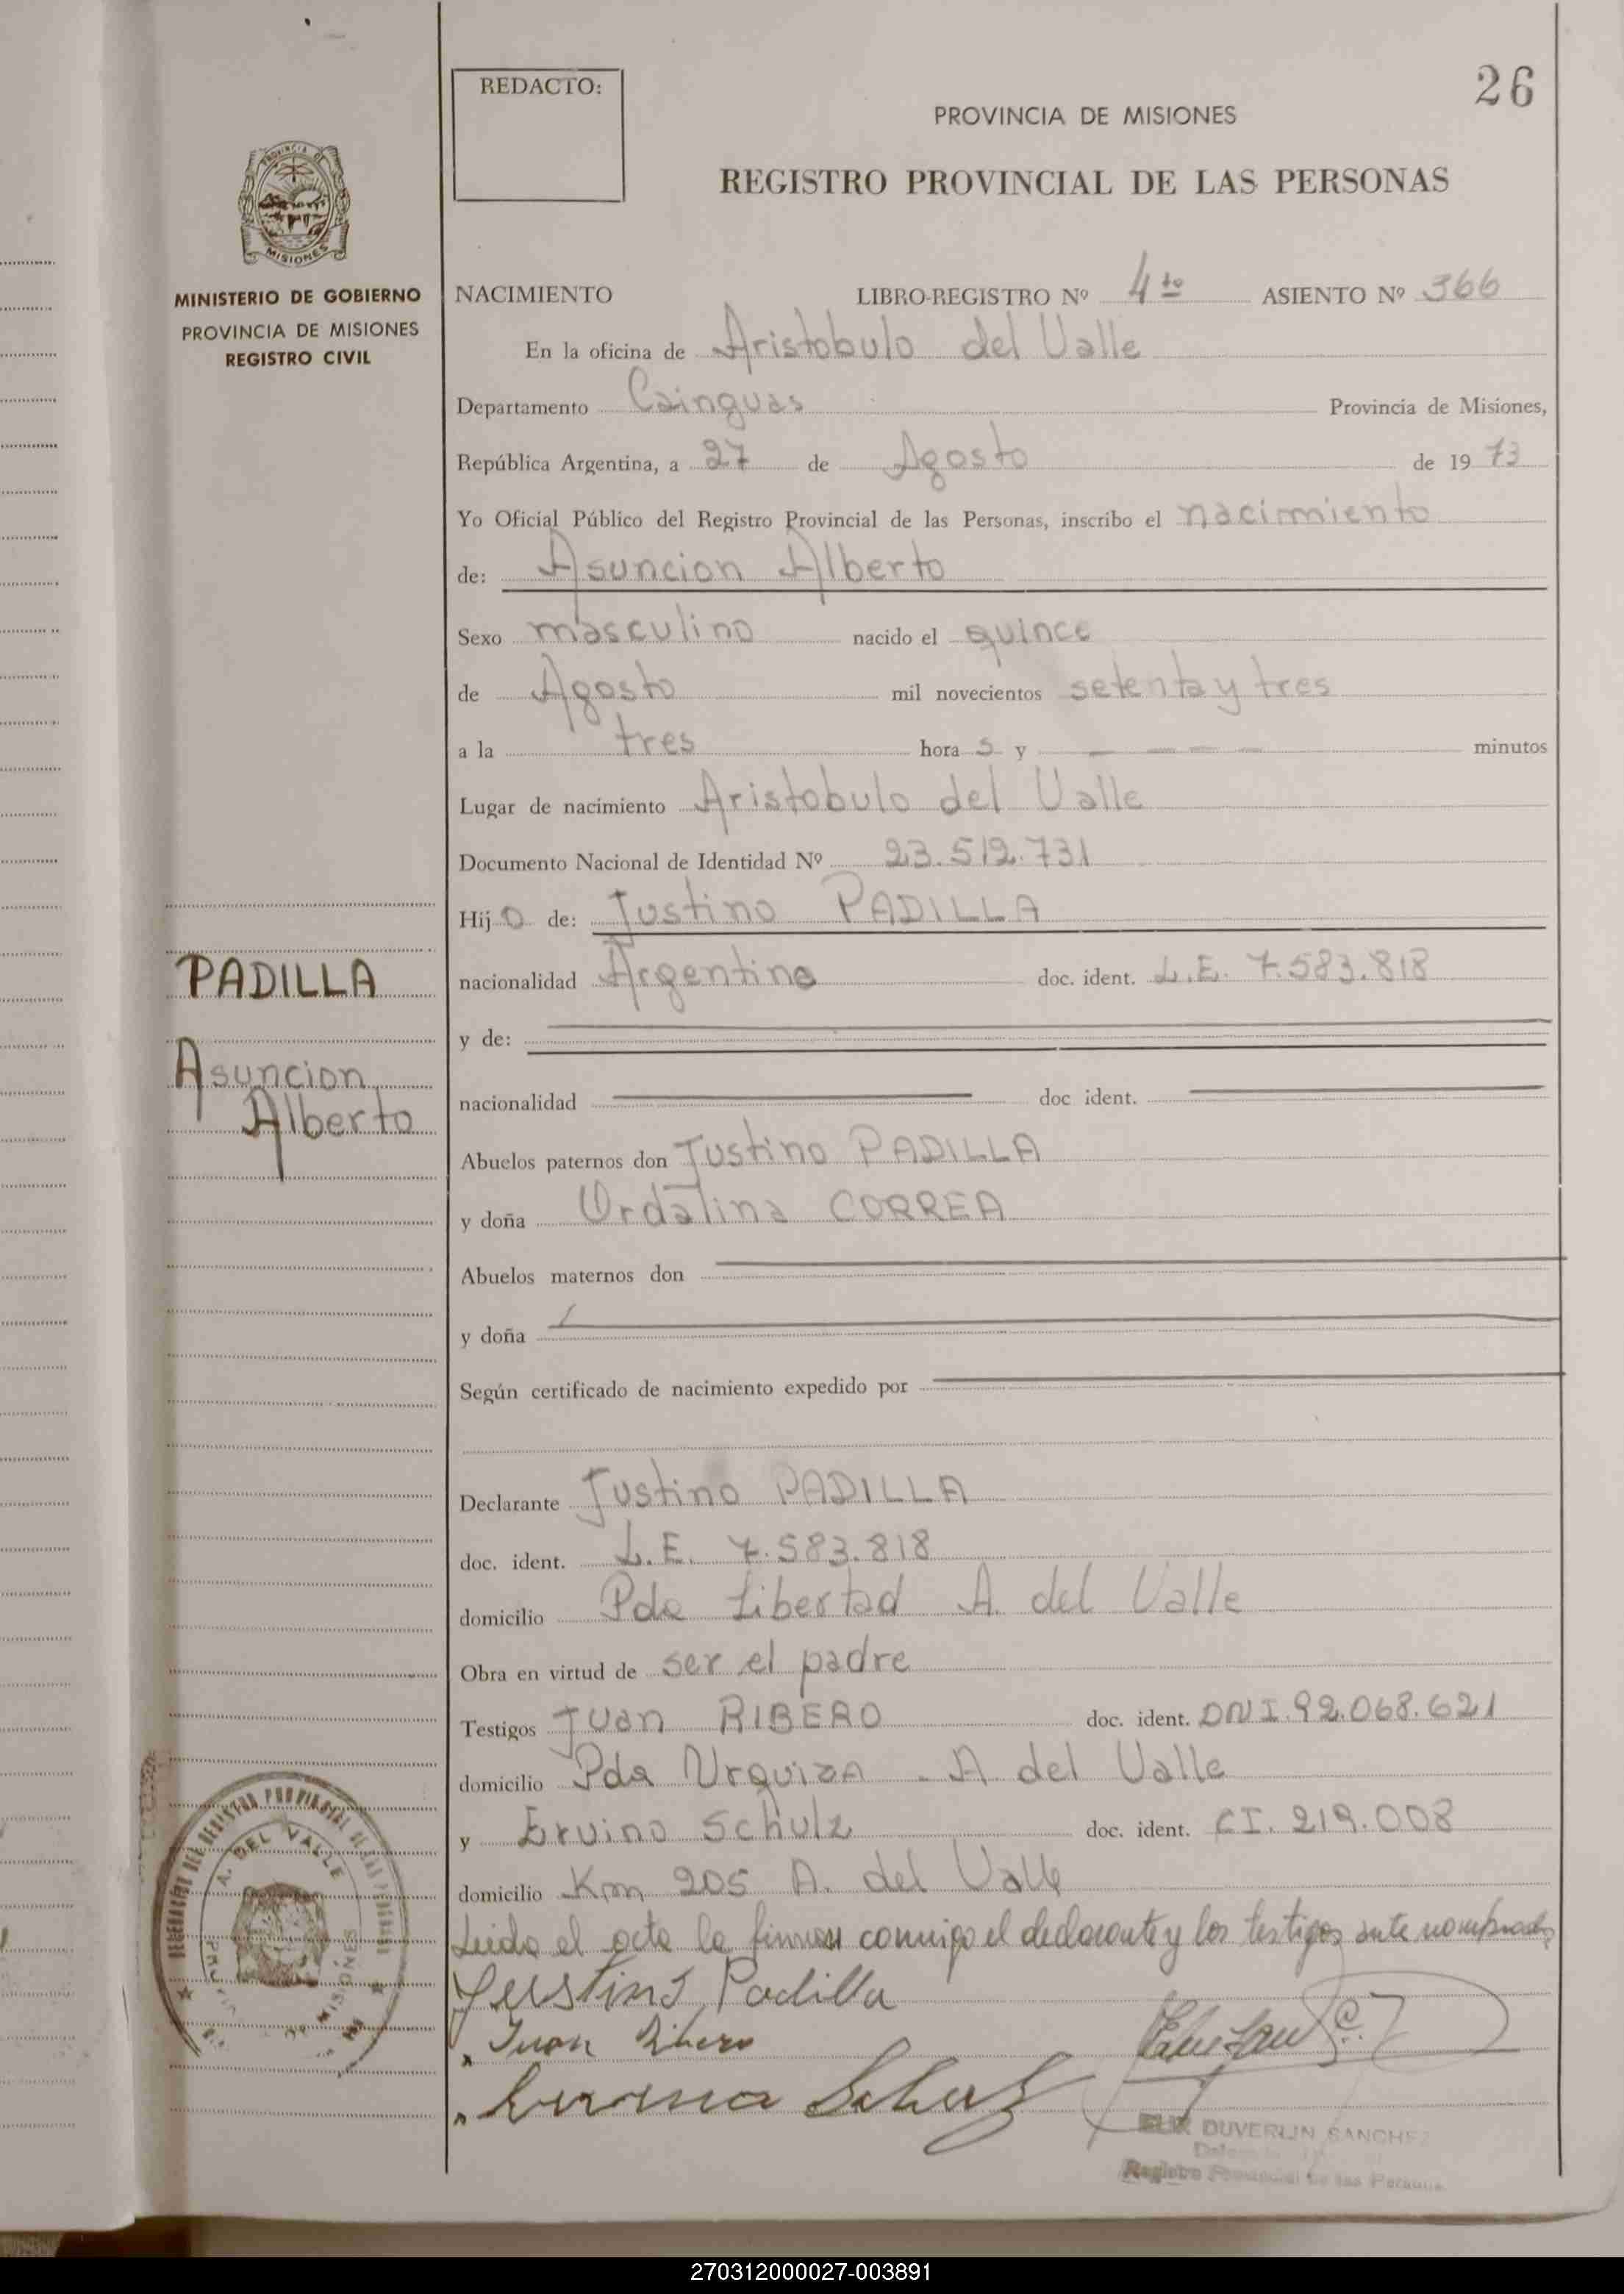 26
REDACTO:
PROVINCIA DE MISIONES
REGISTRO PROVINCIAL DE LAS PERSONAS
PROVINCIA DE
MISIONES
MINISTERIO DE GOBIERNO
PROVINCIA DE MISIONES
REGISTRO CIVIL
NACIMIENTO LIBRO-REGISTRO Nº 4to ASIENTO Nº 366
En la oficina de Aristobulo del Valle
Departamento Cainguas Provincia de Misiones,
República Argentina, a 27 de Agosto de 1973
Yo Oficial Público del Registro Provincial de las Personas, inscribo el nacimiento
de: Asuncion Alberto
Sexo masculino nacido el quince
de Agosto mil novecientos setenta y tres
a la tres hora s y — — — — minutos
Lugar de nacimiento Aristobulo del Valle
Documento Nacional de Identidad Nº 23.512.731
Hijo de: Justino PADILLA
nacionalidad Argentina doc. ident. L.E. 7.583.818
y de:
nacionalidad doc ident.
Abuelos paternos don Justino PADILLA
y doña Ordalina CORREA
Abuelos maternos don
y doña
Según certificado de nacimiento expedido por
PADILLA
Asuncion
Alberto
Declarante Justino PADILLA
doc. ident. L.E. 7.583.818
domicilio Pda Libertad A. del Valle
Obra en virtud de ser el padre
Testigos Juan RIBERO doc. ident. DNI.92.068.621
domicilio Pda Urquiza - A del Valle
y Ervino Schulz doc. ident. CI. 219.008
domicilio Km 205 A. del Valle
Leida el acta la firman conmigo el declarante y los testigos ante nombrados
Justino Padilla
Juan Ribero
A. DEL VALLE
MISIONES
DUVERLIN SANCHEZ
Registro Provincial de las Personas
270312000027-003891